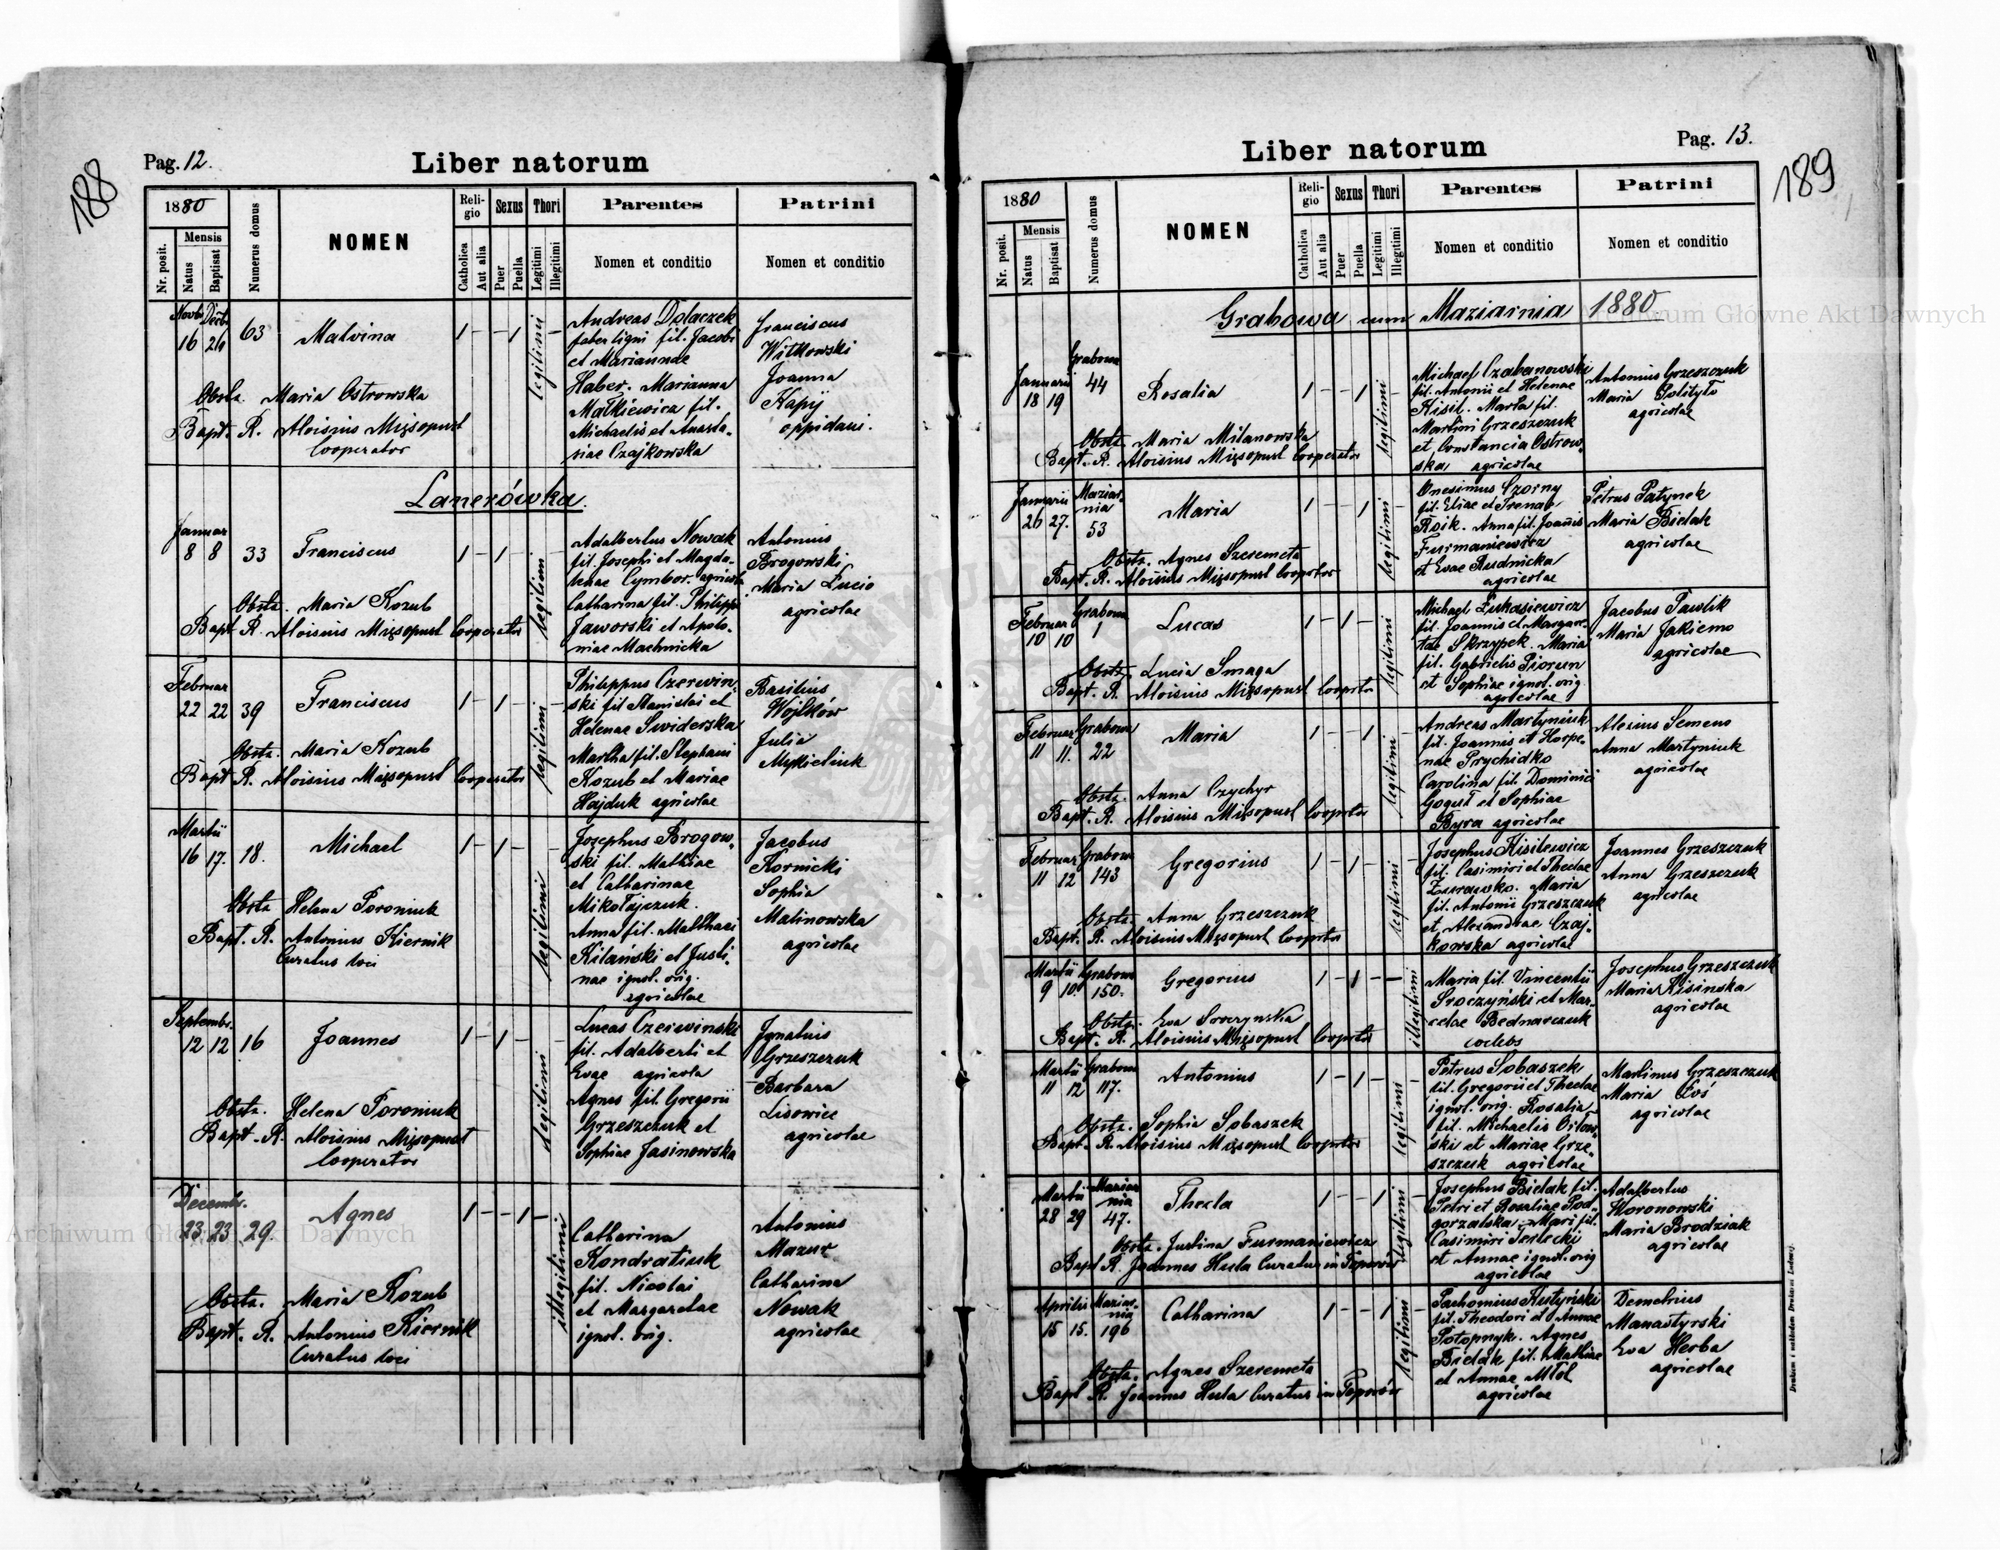 188
Pag. 12.
Liber natorum
1880
Nr. posit.
Mensis
Natus
Baptisat
Numerus domus
NOMEN
Religio
Catholica
Aut alia
Sexus
Puer
Puella
Thori
Legitimi
Illegitimi
Parentes
Nomen et conditio
Patrini
Nomen et conditio
16 63 Malvina
1 - - 1 - legitimi -
faber ligni fil. Jacobi
et Mariannae
Haber. Marianna
Matkiewicz fil.
Michaelis et
Czajkowska
Franciscus
Witkowski
Joanna
Kapij
oppidani.
Obstz. Maria Ostrowska
Bapt. R. Aloisius Mięsopust
Cooperator
Lanerówka.
Januar
8 8 33 Franciscus
1 - 1 - legitimi -
Adalbertus Nowak
fil. Josephi et Magda-
lenae Cymbor. agricola
Catharina fil. Philippi
Jaworski et Apolo-
niae Machnicka
Antonius
Brogowski
Maria Lucio
agricolae
Obstz. Maria Kozub
Bapt. R. Aloisius Mięsopust Cooperator
Februar
22 22 39 Franciscus
1 - 1 - legitimi -
Philippus Czerwin-
ski fil. Stanislai et
Helenae Swiderska
Martha fil. Stephani
Kozub et Mariae
Hajduk agricolae
Basilius
Wojtków
Julia
Obstz. Maria Kozub
Bapt. R. Aloisius Mięsopust Cooperator
Martii
16 17. 18. Michael
1 - 1 - legitimi -
Josephus Brogow-
ski fil. Mathiae
et Catharinae
Mikołajczuk.
Anna fil. Matthaei
Kilański et Justi-
nae ignot. orig.
agricolae
Jacobus
Kornicki
Sophia
Malinowska
agricolae
Obstz. Helena Poroniuk
Bapt. R. Antonius Kiernik
Curatus loci
Septembr.
12 12 16 Joannes
1 - 1 - legitimi -
Lucas Czerwinski
fil. Adalberti et
Evae agricola
Agnes fil. Gregorii
Grzeszczuk et
Sophiae Jasinowska
Ignatius
Grzeszczuk
Barbara
Lisowicz
agricolae
Obstz. Helena Poroniuk
Bapt. R. Aloisius Mięsopust
Cooperator
Decembr.
23 23 29 Agnes
1 - - 1 - illegitimi
Catharina
Kondratiuk
fil. Nicolai
et Margaretae
ignot. orig.
Antonius
Mazur
Catharina
Nowak
agricolae
Obstz. Maria Kozub
Bapt. R. Antonius Kiernik
Curatus loci
189
Pag. 13.
Liber natorum
1880
Nr. posit.
Mensis
Natus
Baptisat
Numerus domus
NOMEN
Religio
Catholica
Aut alia
Sexus
Puer
Puella
Thori
Legitimi
Illegitimi
Parentes
Nomen et conditio
Patrini
Nomen et conditio
Grabowa cum Maziarnia 1880
Januarii Grabowa
18 19 44 Rosalia
1 - - 1 legitimi -
Michael Czabanowski
fil. Antonii et Helenae
Kisil. Marta fil.
Martini Grzeszczuk
et Constancia Ostrow-
ska agricolae
Antonius Grzeszczuk
Maria Polityło
agricolae
Obstz. Maria Milanowska
Bapt. R. Aloisius Mięsopust Cooperator
Januarii Maziarnia
26 27. 53 Maria
1 - - 1 legitimi -
Onesimus Czorny
fil. Eliae et Irenae
Roik. Anna fil. Joannis
Furmaniewicz
et Evae Rudnicka
agricolae
Petrus Patynek
Maria Bielak
agricolae
Obstz. Agnes Szeremeta
Bapt. R. Aloisius Mięsopust Cooperator
Februar Grabowa
10 10 1 Lucas
1 - 1 - legitimi -
Michael Łukasiewicz
fil. Joannis et Margar-
tae Skrzypek. Maria
fil. Gabrielis Piorun
et Sophiae ignot. orig.
agricolae
Jacobus Pawlik
Maria Jakiemo
agricolae
Obstz. Lucia Smaga
Bapt. R. Aloisius Mięsopust Cooprtor
Februar Grabowa
11 11. 22 Maria
1 - - 1 legitimi -
Andreas Martyniuk
fil. Joannis et Horpe-
nae Prychidko
Carolina fil. Dominici
Gogut et Sophiae
Byra agricolae
Alexius Semens
Anna Martyniuk
agricolae
Obstz. Anna Czychyr
Bapt. R. Aloisius Mięsopust Cooprtor
Februar Grabowa
11 12 143 Gregorius
1 - 1 - legitimi -
Josephus Kisilewicz
fil. Casimiri et Theclae
Żurawsko. Maria
fil. Antonii Grzeszczuk
et Alexandrae Czaj-
kowska agricolae
Joannes Grzeszczuk
Anna Grzeszczuk
agricolae
Obstz. Anna Grzeszczuk
Bapt. R. Aloisius Mięsopust Cooprtor
Martii Grabowa
9 10. 150. Gregorius
1 - 1 - - illegitimi
Maria fil. Vincentii
Sroczyński et Mar-
celae Bednarczuk
coelebs
Josephus Grzeszczuk
Maria Kisinska
agricolae
Obstz. Eva Sroczynska
Bapt. R. Aloisius Mięsopust Cooprtor
Martii Grabowa
11 12 117. Antonius
1 - 1 - legitimi -
Petrus Sobaszek
fil. Gregorii et Theclae
ignot. orig. Rosalia
fil. Michaelis Orłow-
ski et Mariae Grze-
szczuk agricolae
Martinus Grzeszczuk
Maria Łoś
agricolae
Obstz. Sophia Sobaszek
Bapt. R. Aloisius Mięsopust Cooprtor
Martii Maziarnia
28 29 47. Thecla
1 - - 1 legitimi -
Josephus Bielak fil.
Petri et Rosaliae Pod-
gorzalska. Mari fil.
Casimiri Terlecki
et Annae ignot. orig
agricolae
Adalbertus
Woronowski
Maria Brodziak
agricolae
Obstz. Justina Furmaniewicz
Bapt. R. Joannes Hula Curatus in Toporów
Aprilis Maziarnia
15 15. 196 Catharina
1 - - 1 legitimi -
Pachomius Kutyński
fil. Theodori et Annae
Potopnyk. Agnes
Bielak fil. Mathiae
et Annae Mtol
agricolae
Demetrius
Manastyrski
Eva Herba
agricolae
Obstz. Agnes Szeremeta
Bapt. R. Joannes Hula Curatus in Toporów
Drukiem i nakładem Drukarni Ludowej.
Archiwum Główne Akt Dawnych
Archiwum Główne Akt Dawnych